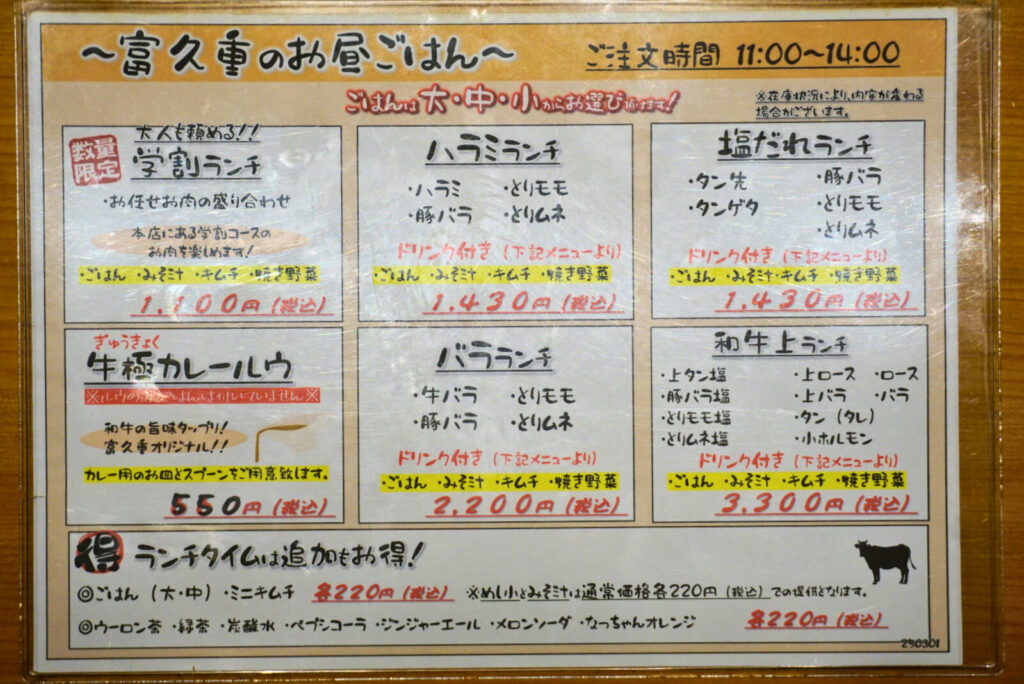 ～富久重のお昼ごはん～
ご注文時間 11:00～14:00
ごはんは大・中・小からお選び頂けます!
※在庫状況により、内容が変わる
場合がございます。
数量限定
大人も頼める!!
学割ランチ
・お任せお肉の盛り合わせ
本店にある学割コースの
お肉を楽しめます!
・ごはん ・みそ汁 ・キムチ ・焼き野菜
1.100円(税込)
ハラミランチ
・ハラミ ・とりモモ
・豚バラ ・とりムネ
ドリンク付き(下記メニューより)
・ごはん ・みそ汁 ・キムチ ・焼き野菜
1.430円(税込)
塩だれランチ
・タン先 ・豚バラ
・タンゲタ ・とりモモ
・とりムネ
ドリンク付き(下記メニューより)
・ごはん ・みそ汁・キムチ ・焼き野菜
1.430円(税込)
ぎゅうきょく
牛極カレールウ
※ルウのみでごはんは付いていません※
和牛の旨味タップリ!
富久重オリジナル!!
カレー用のお皿とスプーンをご用意致します。
550円(税込)
バラランチ
・牛バラ ・とりモモ
・豚バラ ・とりムネ
ドリンク付き(下記メニューより)
・ごはん ・みそ汁 ・キムチ ・焼き野菜
2.200円(税込)
和牛上ランチ
・上タン塩 ・上ロース ・ロース
・豚バラ塩 ・上バラ ・バラ
・とりモモ塩 ・タン(タレ)
・とりムネ塩 ・小ホルモン
ドリンク付き(下記メニューより)
・ごはん ・みそ汁 ・キムチ ・焼き野菜
3.300円(税込)
得 ランチタイムは追加もお得!
◎ごはん(大・中)・ミニキムチ 各220円(税込) ※めし小とみそ汁は通常価格各220円(税込)での提供となります。
◎ウーロン茶 ・緑茶 ・炭酸水 ・ペプシコーラ ・ジンジャーエール ・メロンソーダ ・なっちゃんオレンジ 各220円(税込)
240301